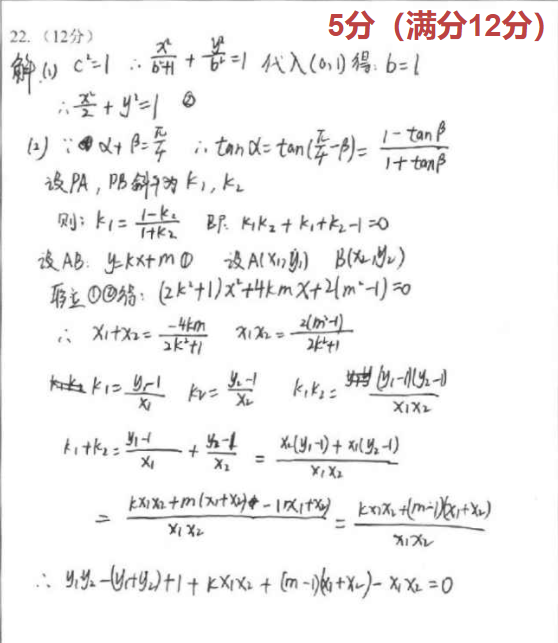 5分（满分12分）
22. （12分）
解(1) c²=1 ∴ x²/(b²+1) + y²/b² =1 代入(0,1)得: b=1
∴ x²/2 + y²=1 ②
(2) ∵ α+β=π/4 ∴ tanα=tan(π/4-β)= (1-tanβ)/(1+tanβ)
设PA, PB斜率为 k₁, k₂
则: k₁= (1-k₂)/(1+k₂) 即: k₁k₂+k₁+k₂-1=0
设AB: y=kx+m ① 设A(x₁,y₁) B(x₂,y₂)
联立①②得: (2k²+1)x²+4kmx+2(m²-1)=0
∴ x₁+x₂= -4km/(2k²+1) x₁x₂= 2(m²-1)/(2k²+1)
k₁= (y₁-1)/x₁ k₂= (y₂-1)/x₂ k₁k₂= (y₁-1)(y₂-1)/(x₁x₂)
k₁+k₂= (y₁-1)/x₁ + (y₂-1)/x₂ = (x₂(y₁-1)+x₁(y₂-1))/(x₁x₂)
= (kx₁x₂+m(x₁+x₂)-1(x₁+x₂))/(x₁x₂) = (kx₁x₂+(m-1)(x₁+x₂))/(x₁x₂)
∴ y₁y₂-(y₁+y₂)+1+kx₁x₂+(m-1)(x₁+x₂)-x₁x₂=0